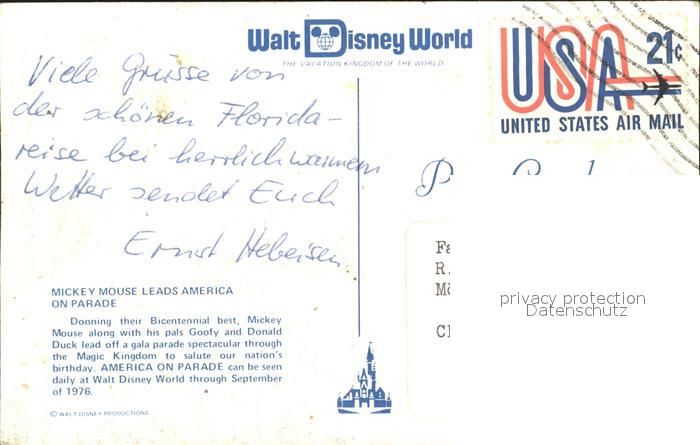 Walt Disney World
THE VACATION KINGDOM OF THE WORLD
USA 21c
UNITED STATES AIR MAIL
Viele Grüsse von
der schönen Florida-
reise bei herrlich warmem
Wetter sendet Euch
Ernst Hebeisen
MICKEY MOUSE LEADS AMERICA
ON PARADE
Donning their Bicentennial best, Mickey
Mouse along with his pals Goofy and Donald
Duck lead off a gala parade spectacular through
the Magic Kingdom to salute our nation's
birthday. AMERICA ON PARADE can be seen
daily at Walt Disney World through September
of 1976.
© WALT DISNEY PRODUCTIONS
R.
privacy protection
Datenschutz